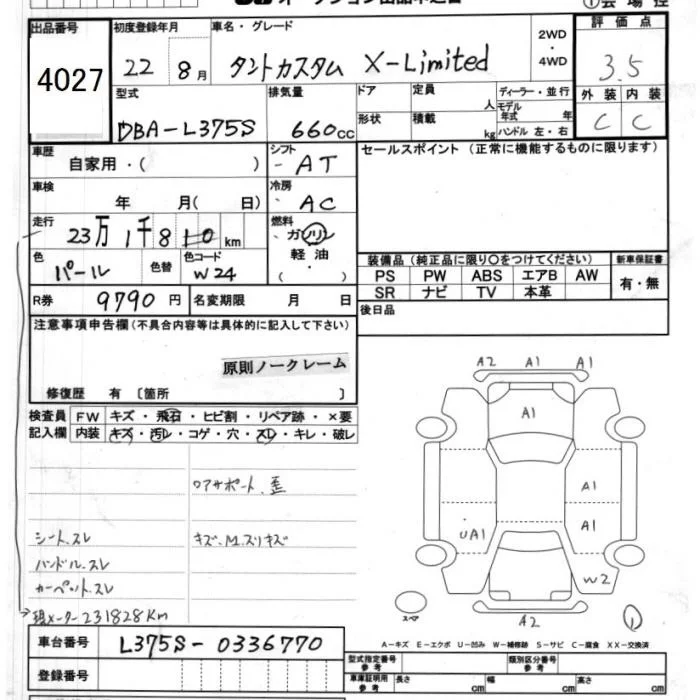 出品番号 4027
初度登録年月 22 8月
車名・グレード タントカスタム X-Limited
2WD・4WD
評価点 3.5
外装 内装
C C
型式 DBA-L375S
排気量 660cc
ドア 定員 人
形状 積載 kg
ディーラー・並行
モデル年式 年
ハンドル 左・右
車歴 自家用・( )
シフト - AT
セールスポイント (正常に機能するものに限ります)
車検 年 月( 日)
冷房 AC
走行 23万1千8 km
燃料 ガソリン・軽油・( )
色 パール 色替 色コード W24
装備品 (純正品に限り○をつけてください)
新車保証書
PS PW ABS エアB AW
SR ナビ TV 本革
有・無
R券 9790円 名変期限 月 日
後日品
注意事項申告欄 (不具合内容等は具体的に記入して下さい)
原則ノークレーム
修復歴 有 〔箇所 〕
検査員記入欄
FW キズ・飛石・ヒビ割・リペア跡・×要
内装 キズ・汚レ・コゲ・穴・スレ・キレ・破レ
A2 A1 A1
A1
A1
A1
UA1
W2
A2
スペア
①
コアサポート、歪
シート、スレ
キズ、M.スリキズ
ハンドル、スレ
カーペット、スレ
現メーター231828Km
A-キズ E-エクボ U-凹み W-補修跡 S-サビ C-腐食 XX-交換済
車台番号 L375S-0336770
登録番号
型式指定番号 参考
類別区分番号 参考
車庫証明用 参考 長さ cm 幅 cm 高さ cm